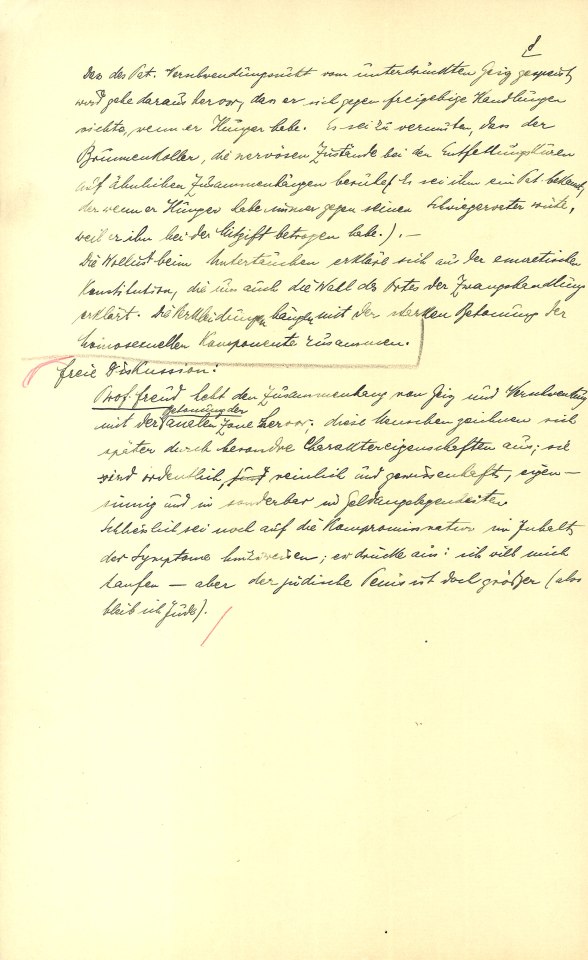 8
Dass des Pat. Verschwendungssucht vom unterdrückten Geiz gespeist
werd gehe daraus hervor, dass er sich gegen freigebige Handlungen
richte, wenn er Hunger habe. Es sei zu vermuten, dass der
Brunnenkoller, die nervösen Zustände bei den Entfettungskuren
auf ähnlichen Zusammenhängen beruhe. Es sei ihm ein Pat. bekannt,
der wenn er Hunger habe immer gegen seinen Schwiegervater wüte,
weil er ihn bei der Mitgift betrogen habe.). —
Die Wollust beim Untertauchen erkläre sich aus der
Konstitution, die uns auch die Wahl des Ortes der Zwangshandlung
erklärt. Die Verkleidungen hängen mit der starken Betonung der
homosexuellen Komponente zusammen.
freie Diskussion:
Prof. Freud hebt den Zusammenhang von Geiz und Verschwendung
mit der Betonung der analen Zone hervor; diese Menschen zeichnen sich
später durch besondre Charaktereigenschaften aus; sie
sind ordentlich, sind reinlich und gewissenhaft, eigen-
sinnig und in sonderbar in Geldangelegenheiten
Schliesslich sei noch auf die Kompromissnatur im Inhalt
der Symptome hinzuweisen; er drücke aus: ich will mich
taufen — aber der jüdische Penis ist doch größer (also
bleib ich Jude).